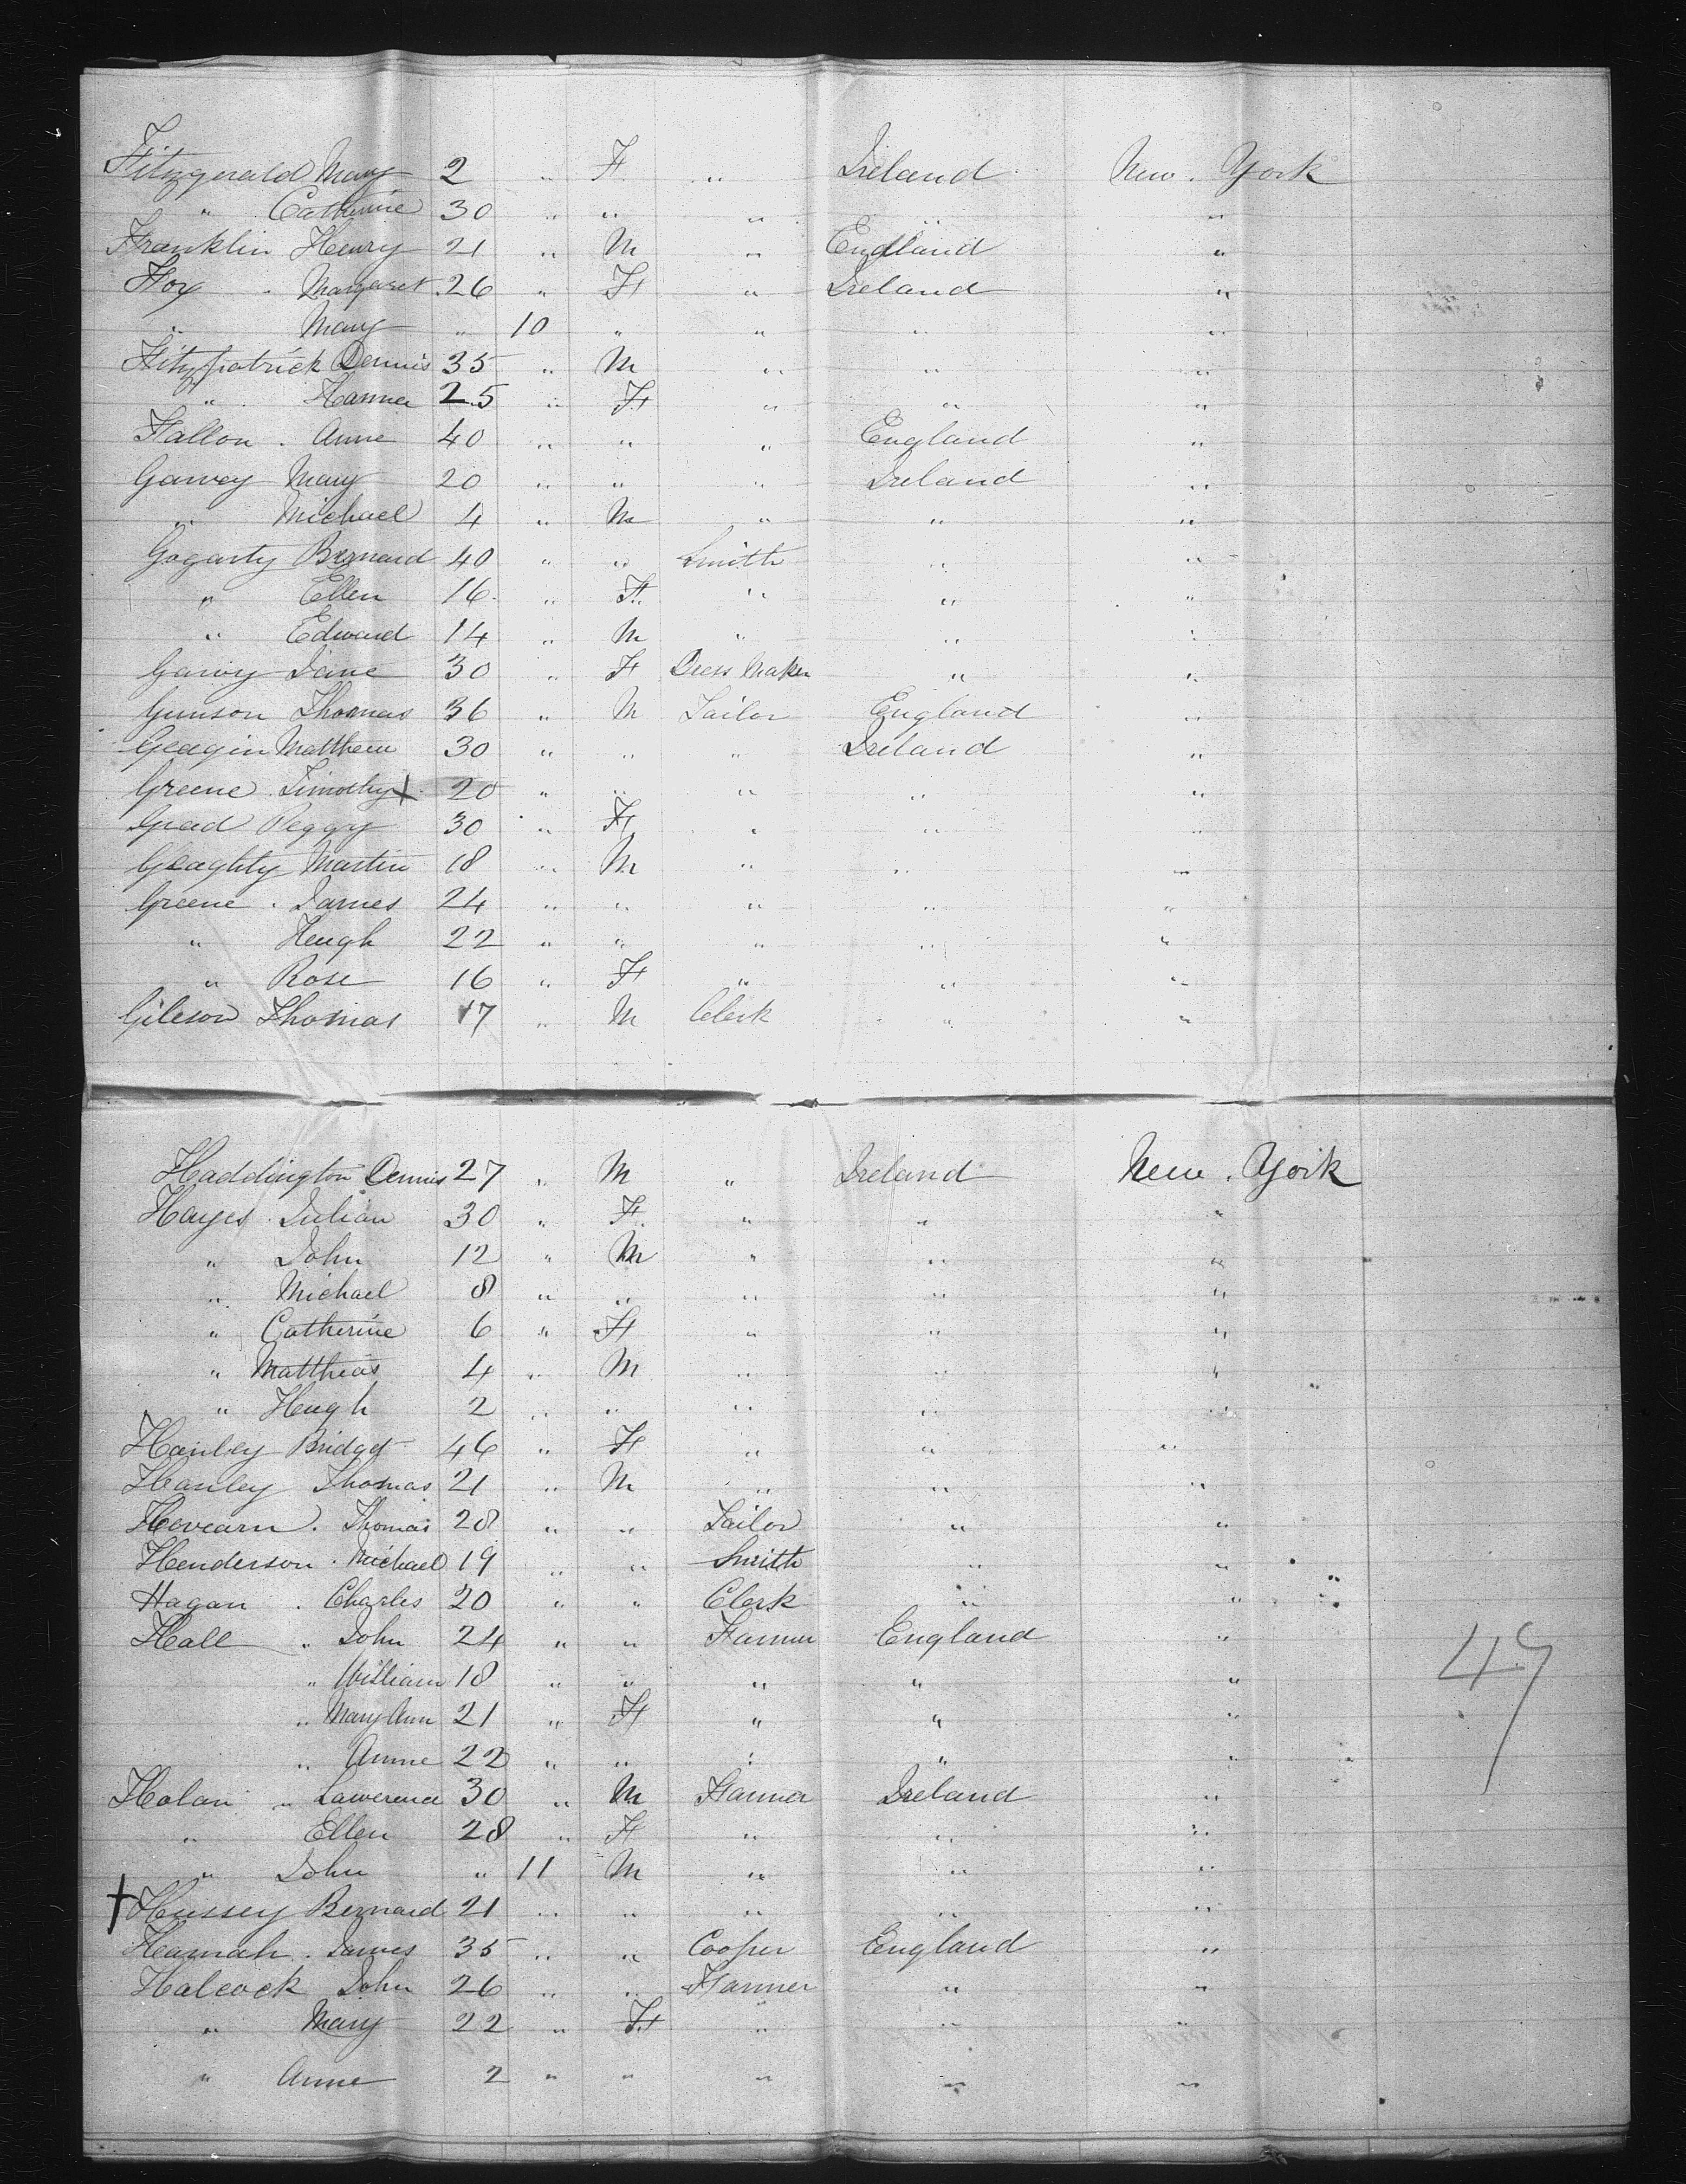 Fitzgerald Mary 2 " F. " Ireland New. York
" Catherine 30 " " " " "
Franklin Henry 21 " M " England "
Fox . Margaret. 26 " F " Ireland "
" Mary " 10 " " " "
Fitzpatrick Dennis 35 " M " " "
" Hanna 25 " F " " "
Fallon . Anne 40 " " " England "
Garvey Mary 20 " " " Ireland "
" Michael 4 " M " " "
Gogarty Bernard 40 " " Smith " "
" Ellen 16. " F " " "
" Edward 14 " M " " "
Garvy Jane 30 " F Dress Maker " "
Gunson Thomas 36 " M Tailor England "
Geagin Matthew 30 " " " Ireland "
Greene Timothy X 20 " " " " "
Peggy 30 " F " " "
Geaghty Martin 18 " M " " "
Greene . James 24 " " " " "
" Hugh 22 " " " " "
" Rose 16 " F " " "
Gileson Thomas 17 " M Clerk " "
Haddington Dennis 27 " M " Ireland New. York
Hayes . Julian 30 " F " " "
" John 12 " M " " "
" Michael 8 " " " " "
" Catherine 6 " F " " "
" Matthias 4 " M " " "
" Hugh 2 " " " " "
Hanley Bridget 46 " F " " "
Hanley Thomas 21 " M " " "
Hovearn . Thomas 28 " " Tailor " "
Henderson . Michael 19 " " Smith " "
Hagan . Charles 20 " " Clerk " "
Hall " John 24 " " Farmer England "
" William 18 " " " " "
" Mary Ann 21 " F " " "
" Anne 22 " " " " "
Holan " Lawerence 30 " M Farmer Ireland "
" Ellen 28 " F " " "
" John " 11 M " " "
† Hussey Bernard 21 " " " " "
Hannah . James 35 " " Cooper England "
Halcock John 26 " " Farmer " "
" Mary 22 " F " " "
" Anne 2 " " " " "
47